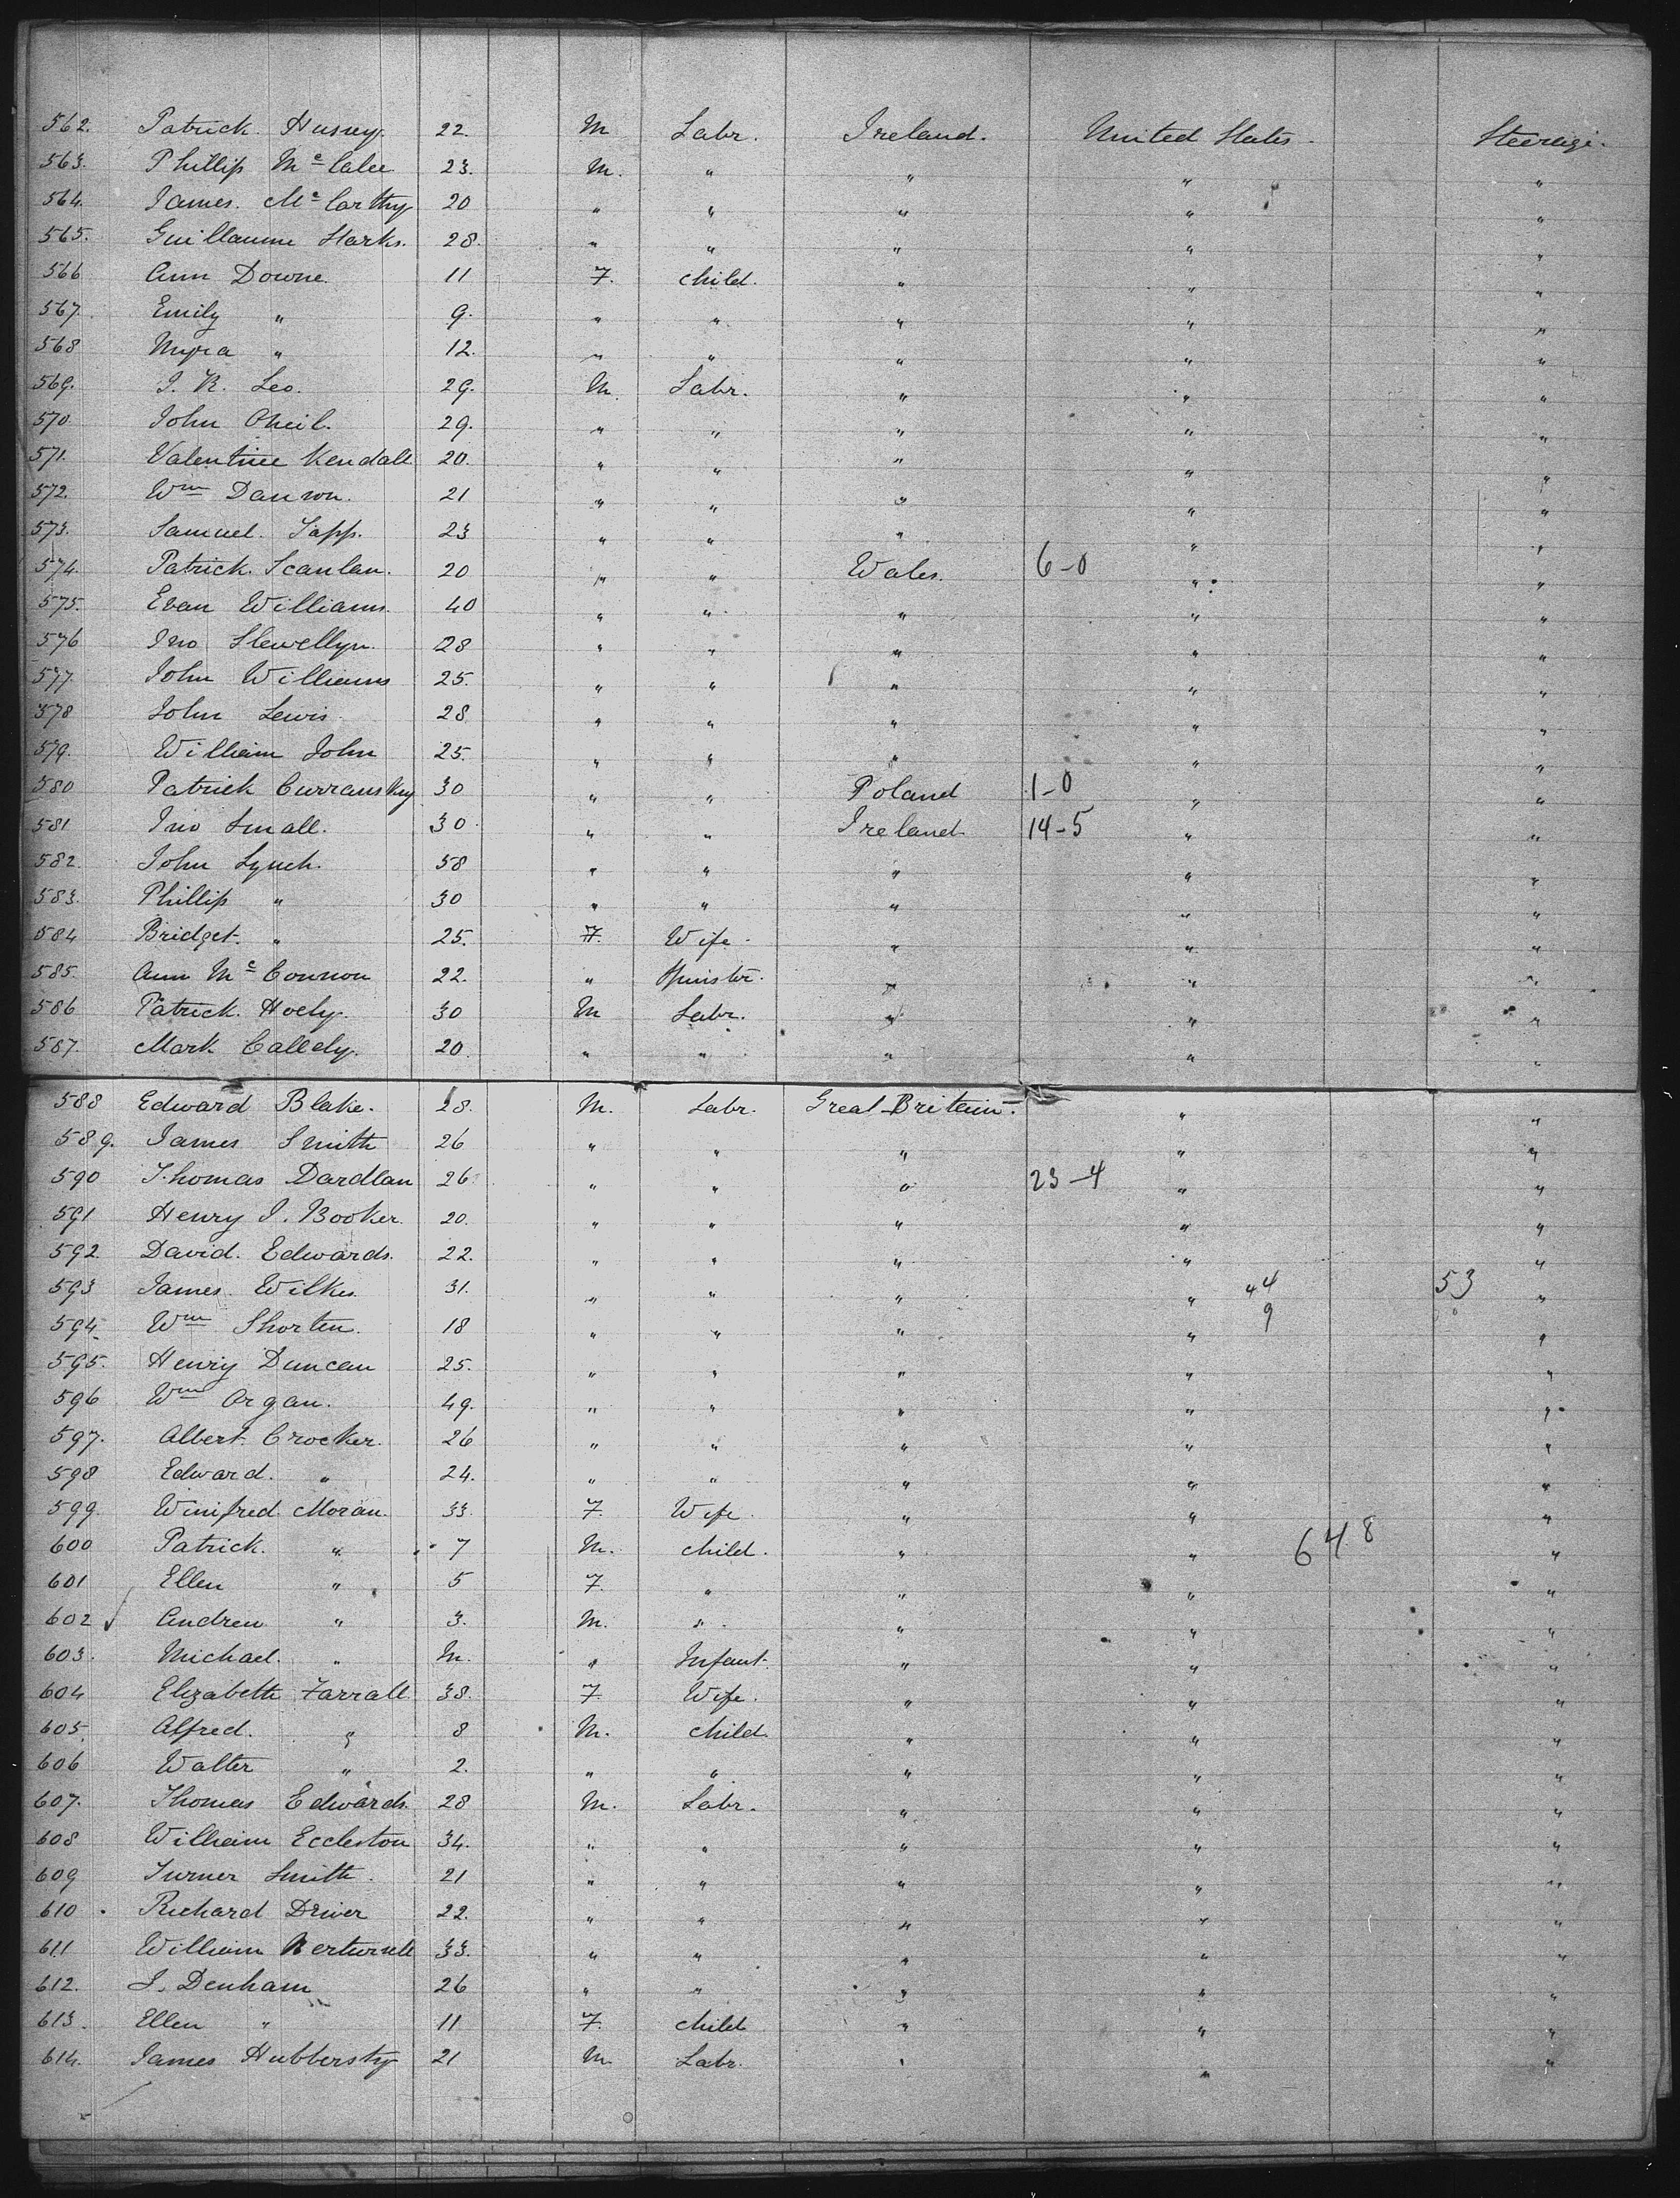 562. Patrick Hussey. 22. M Labr. Ireland. United States. Steerage.
563. Phillip Mc Calee 23. M. " " " "
564. James. Mc Carthy 20 " " " " "
565. Guillaume Starks. 28. " " " " "
566 Ann Downe. 11 F. child. " " "
567. Emily " 9. " " " " "
568 Myra " 12. " " " " "
569. J. R. Leo. 29. M. Labr. " " "
570. John Oneil. 29. " " " " "
571. Valentine Kendall 20. " " " " "
572. Wm 21 " " " " "
573. Samuel. Tapp. 23 " " " " "
574. Patrick. Scanlan. 20 " " Wales. 6-0 " "
575. Evan Williams. 40 " " " " "
576 Jno Llewellyn. 28 " " " " "
577. John Williams 25. " " " " "
578 John Lewis. 28 " " " " "
579. William John 25. " " " " "
580 Patrick 30 " " Poland 1-0 " "
581 Jno Small. 30. " " Ireland 14-5 " "
582. John Lynch. 58 " " " " "
583. Phillip " 30 " " " " "
584 Bridget. " 25. F. Wife. " " "
585. Ann Mc Connon 22. " Spinster. " " "
586 Patrick. Hoely. 30 M Labr. " " "
587. Mark Callely. 20 " " " " "
588 Edward Blake. 28. M. Labr. Great Britain. " "
589. James Smith 26 " " " " "
590 Thomas Dardlan 26. " " " 23-4 " "
591 Henry J. Booker. 20. " " " " "
592. David. Edwards. 22. " " " " "
593 James. Wilkes 31. " " " " 44 53 "
594. Wm Shorten. 18 " " " " 9 "
595. Henry Duncan 25. " " " " "
596 Wm Organ. 49. " " " " "
597. Albert. Crocker. 26 " " " " "
598 Edward. " 24. " " " " "
599. Winifred Moran. 33. F. Wife. " " "
600 Patrick. " 7 M. child. " " 648 "
601 Ellen " 5 F. " " " "
602 Andrew " 3. M. " " " "
603. Michael. " M. " Infant. " " "
604 Elizabeth Farrall 38. F. Wife. " " "
605. Alfred. " 8 M. child " " "
606 Walter " 2. " " " " "
607. Thomas Edwards. 28 M. Labr. " " "
608 William Eccleston 34. " " " " "
609 Turner Smith. 21 " " " " "
610 Richard Driver 22. " " " " "
611 William 33. " " " " "
612. J. Denham 26 " " " " "
613. Ellen " 11 F. child " " "
614. James Hubbersty 21 M. Labr. " " "